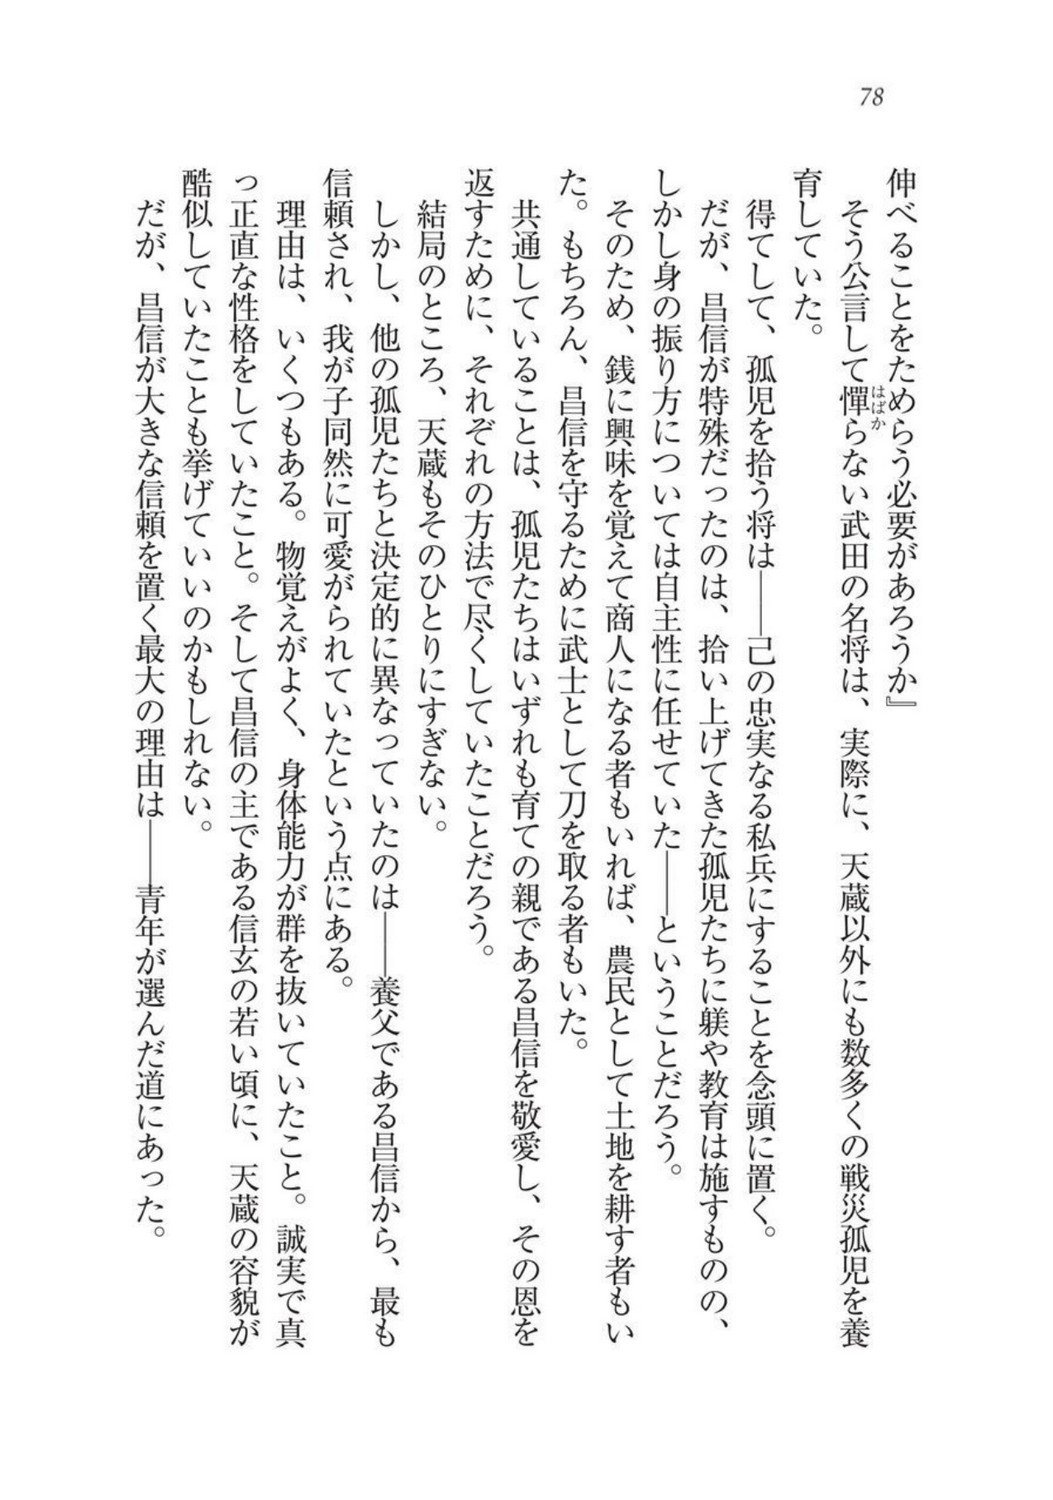 78
伸べることをためらう必要があろうか』
　そう公言して憚らない武田の名将は、実際に、天蔵以外にも数多くの戦災孤児を養
はばか
育していた。
　得てして、孤児を拾う将は――己の忠実なる私兵にすることを念頭に置く。
　だが、昌信が特殊だったのは、拾い上げてきた孤児たちに躾や教育は施すものの、
しかし身の振り方については自主性に任せていた――ということだろう。
　そのため、銭に興味を覚えて商人になる者もいれば、農民として土地を耕す者もい
た。もちろん、昌信を守るために武士として刀を取る者もいた。
　共通していることは、孤児たちはいずれも育ての親である昌信を敬愛し、その恩を
返すために、それぞれの方法で尽くしていたことだろう。
　結局のところ、天蔵もそのひとりにすぎない。
　しかし、他の孤児たちと決定的に異なっていたのは――養父である昌信から、最も
信頼され、我が子同然に可愛がられていたという点にある。
　理由は、いくつもある。物覚えがよく、身体能力が群を抜いていたこと。誠実で真
っ正直な性格をしていたこと。そして昌信の主である信玄の若い頃に、天蔵の容貌が
酷似していたことも挙げていいのかもしれない。
　だが、昌信が大きな信頼を置く最大の理由は――青年が選んだ道にあった。